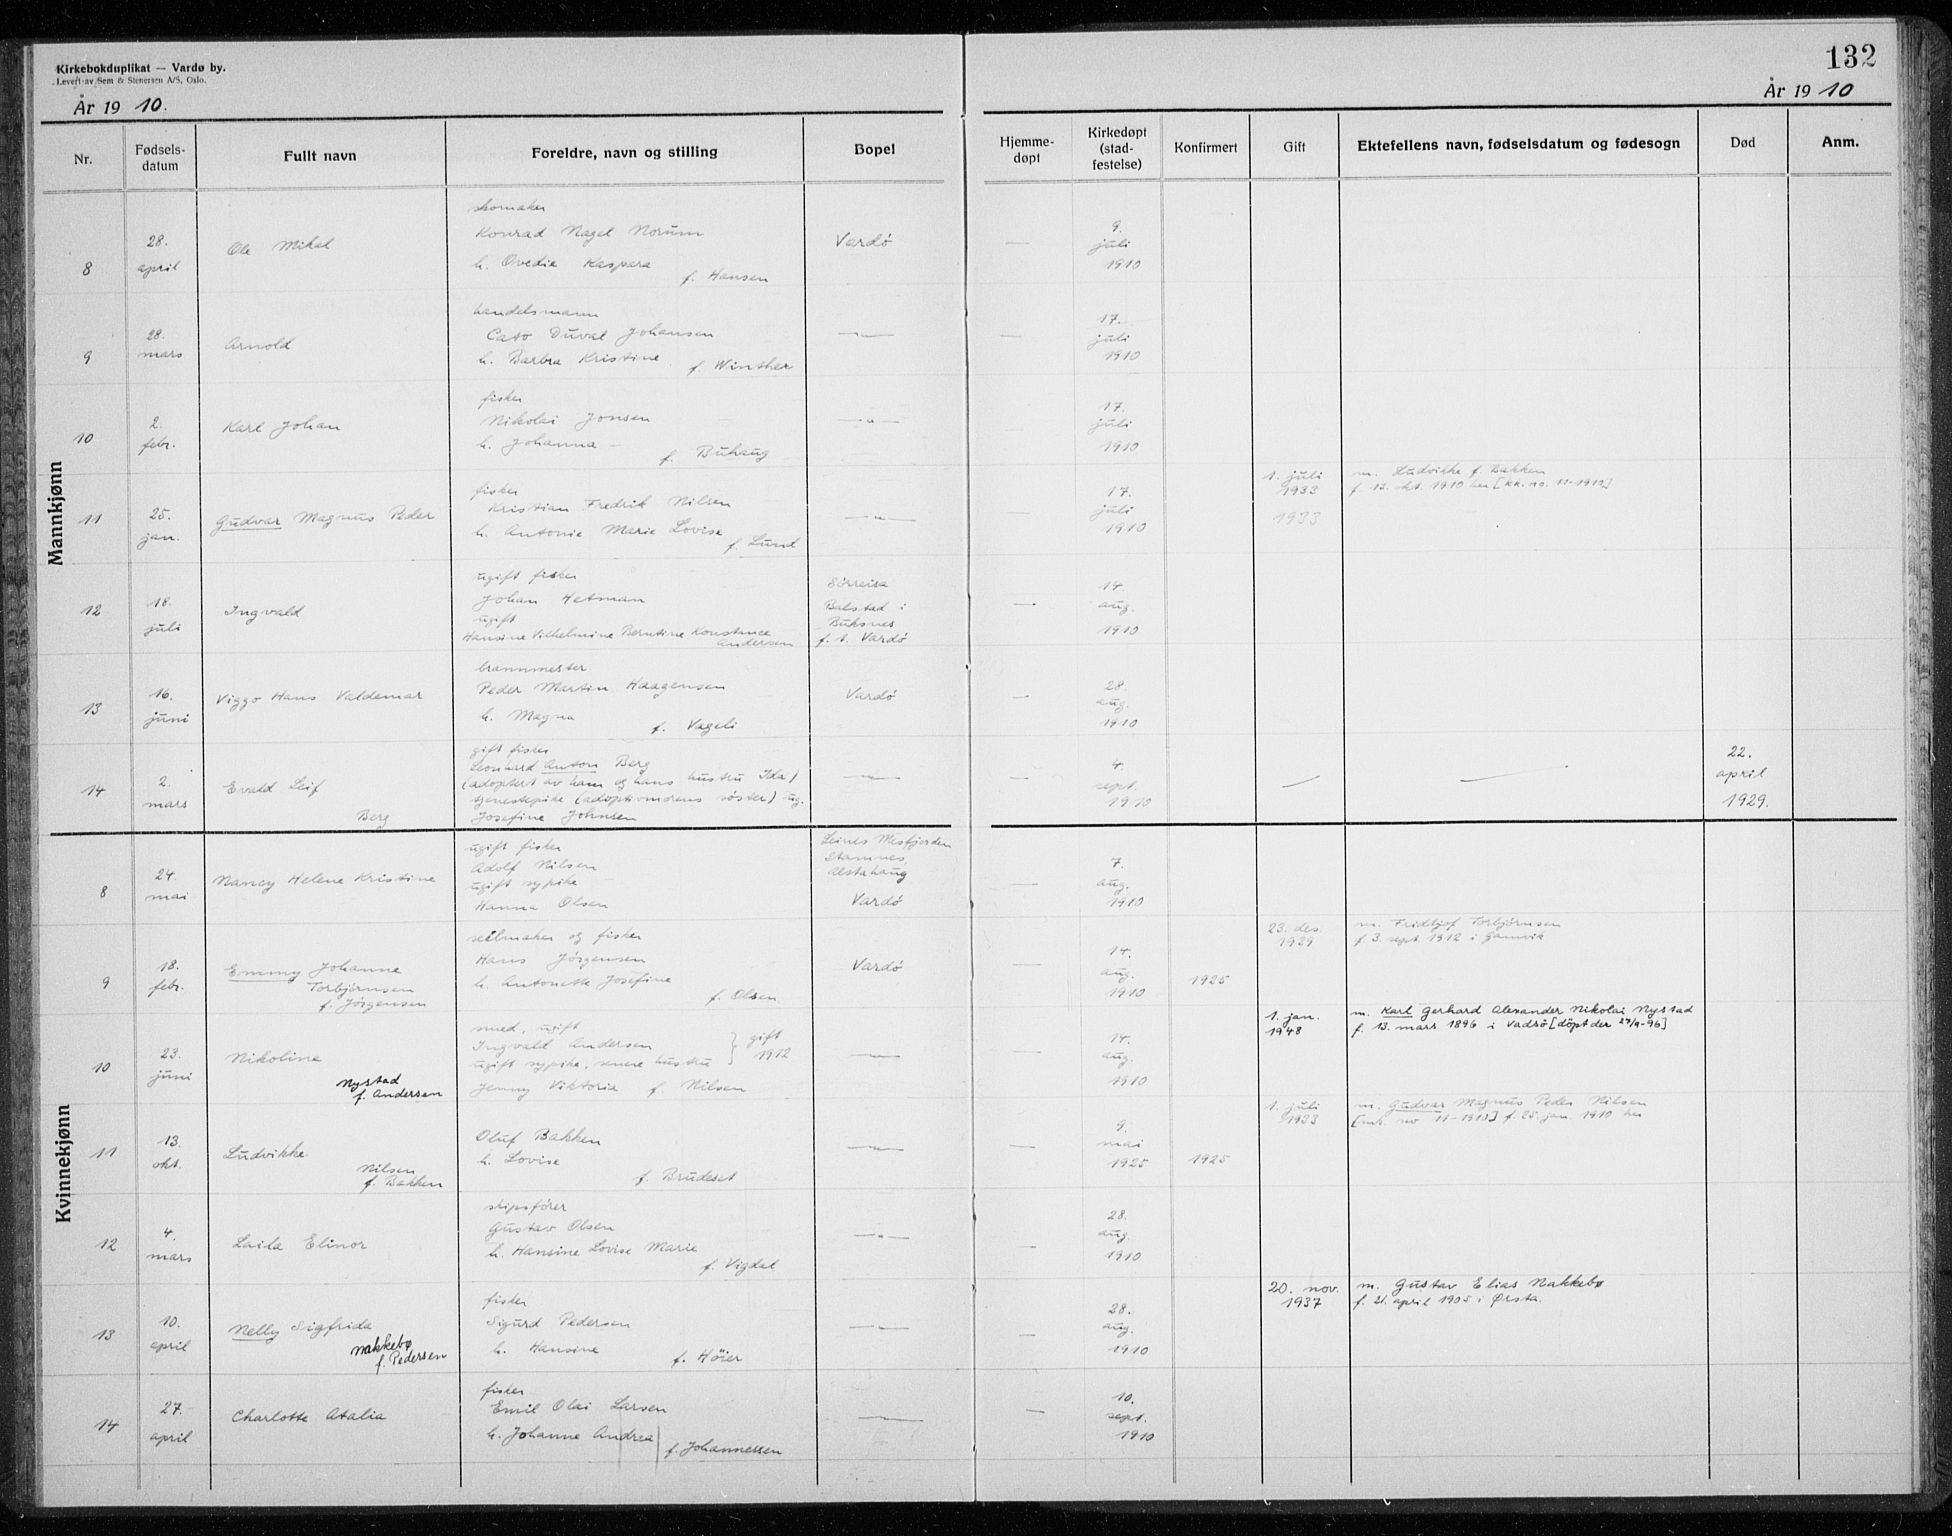 Kirkebokduplikat — Vardø by.
Levert av Sem & Stenersen A/S, Oslo.
132
År 1910.
År 1910
Nr.
Fødsels-
datum
Fullt navn
Foreldre, navn og stilling
Bopel
Hjemme-
døpt
Kirkedøpt
(stad-
festelse)
Konfirmert
Gift
Ektefellens navn, fødselsdatum og fødesogn
Død
Anm.
Mannkjønn
8
28.
april
Ole Mikal
skomaker
Konrad Nagel Norum
h. Ovedia Kaspara
f. Hansen
Vardø
—
9.
juli
1910
9
28.
mars
Arnold
handelsmann
Cato Duval Johansen
h. Barbra Kristine
f. Winther
—"—
—
17.
juli
1910
10
2.
febr.
Karl Johan
fisker
Nikolai Jonsen
h. Johanna —
f. Buhaug
—"—
—
17.
juli
1910
11
25.
jan.
Gudvar Magnus Peder
fisker
Kristian Fredrik Nilsen
h. Antonie Marie Lovise
f. Lund
—"—
—
17.
juli
1910
1. juli
1933
1933
m. Ludvikke f. Bakken
f. 13. okt. 1910 her [kk. no. 11-1910]
12
18.
juli
Ingvald
ugift fisker
Johan Hetman
ugift
Hansine Vilhelmine Berntine Konstance
Andersen
Sörreisa
Balstad i
Buksnes
f. t. Vardø
—
14.
aug.
1910
13
16.
juni
Viggo Hans Valdemar
brannmester
Peder Martin Haagensen
h. Magna
f. Vageli
Vardø
—
28.
aug.
1910
14
2.
mars
Evald Leif
Berg
gift fisker
Leonhard Anton Berg
(adoptert av ham og hans hustru Ida)
tjenestepike (adoptivmorens søster) ug.
Josefine Johnsen
—"—
—
4.
sept.
1910
—
—
22.
april
1929.
Kvinnekjønn
8
24.
mai
Nancy Helene Kristine
ugift fisker
Adolf Nilsen
ugift sypike
Hanna Olsen
Leines Mesfjorden
Stamnes,
Alstahaug
Vardø
—
7.
aug.
1910
9
18.
febr.
Emmy Johanne
Torbjørnsen
f. Jörgensen
seilmaker og fisker
Hans Jörgensen
h. Antonette Josefine
f. Olsen
Vardø
—
14.
aug.
1910
1925
23. des.
1929
m. Fridtjof Torbjörnsen
f. 3. sept. 1912 i Gamvik
10
23.
juni
Nikoline
Nystad
f. Andersen
smed, ugift
Ingvald Andersen
ugift sypike, senere hustru
Jenny Viktoria f. Nilsen
} gift
1912
—"—
—
14.
aug.
1910
1. jan.
1948
m. Karl Gerhard Alexander Nikolai Nystad
f. 13. mars 1896 i Vadsø [döpt der 27/9-96]
11
13.
okt.
Ludvikke
Nilsen
f. Bakken
Oluf Bakken
h. Lovise
f. Brudeset
—"—
—
9.
mai
1925
1925
1. juli
1933
m. Gudvar Magnus Peder Nilsen
[mk. no 11-1910] f. 25. jan. 1910 her
12
4.
mars
Laila Elinor
skipsfører
Gustav Olsen
h. Hansine Lovise Marie
f. Vigdal
—"—
—
28.
aug.
1910
13
10.
april
Nelly Sigfrida
Nakkebø
f. Pedersen
fisker
Sigurd Pedersen
h. Hansine
f. Höier
—"—
—
28.
aug.
1910
20. nov.
1937
m. Gustav Elias Nakkebø
f. 21. april 1905 i Ørsta.
14
27.
april
Charlotte Atalia
fisker
Emil Olai Larsen
h. Johanne Andrea
f. Johannessen
—"—
—
10.
sept.
1910